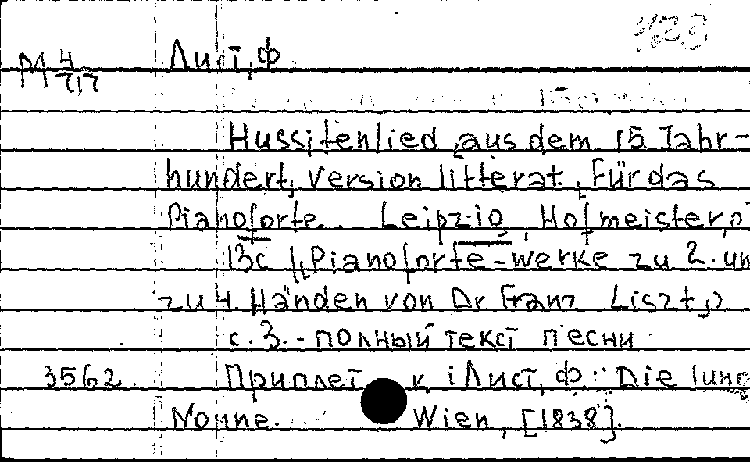 М 4/717 Лист, Ф
Hussitenlied aus dem 15 Jahr-
hundert, version litterat, Für das
Pianoforte. Leipzig, Hofmeister,
13c („Pianoforte-werke zu 2. un
zu 4. Händen von Dr Franz Liszt,
с. 3. - полный текст песни
3562 Приплет к: Лист, Ф.: Die
Nonne. Wien, [1838].